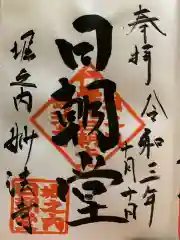 奉拝
令和三年
十月十日
日朝堂
堀之内
妙法寺